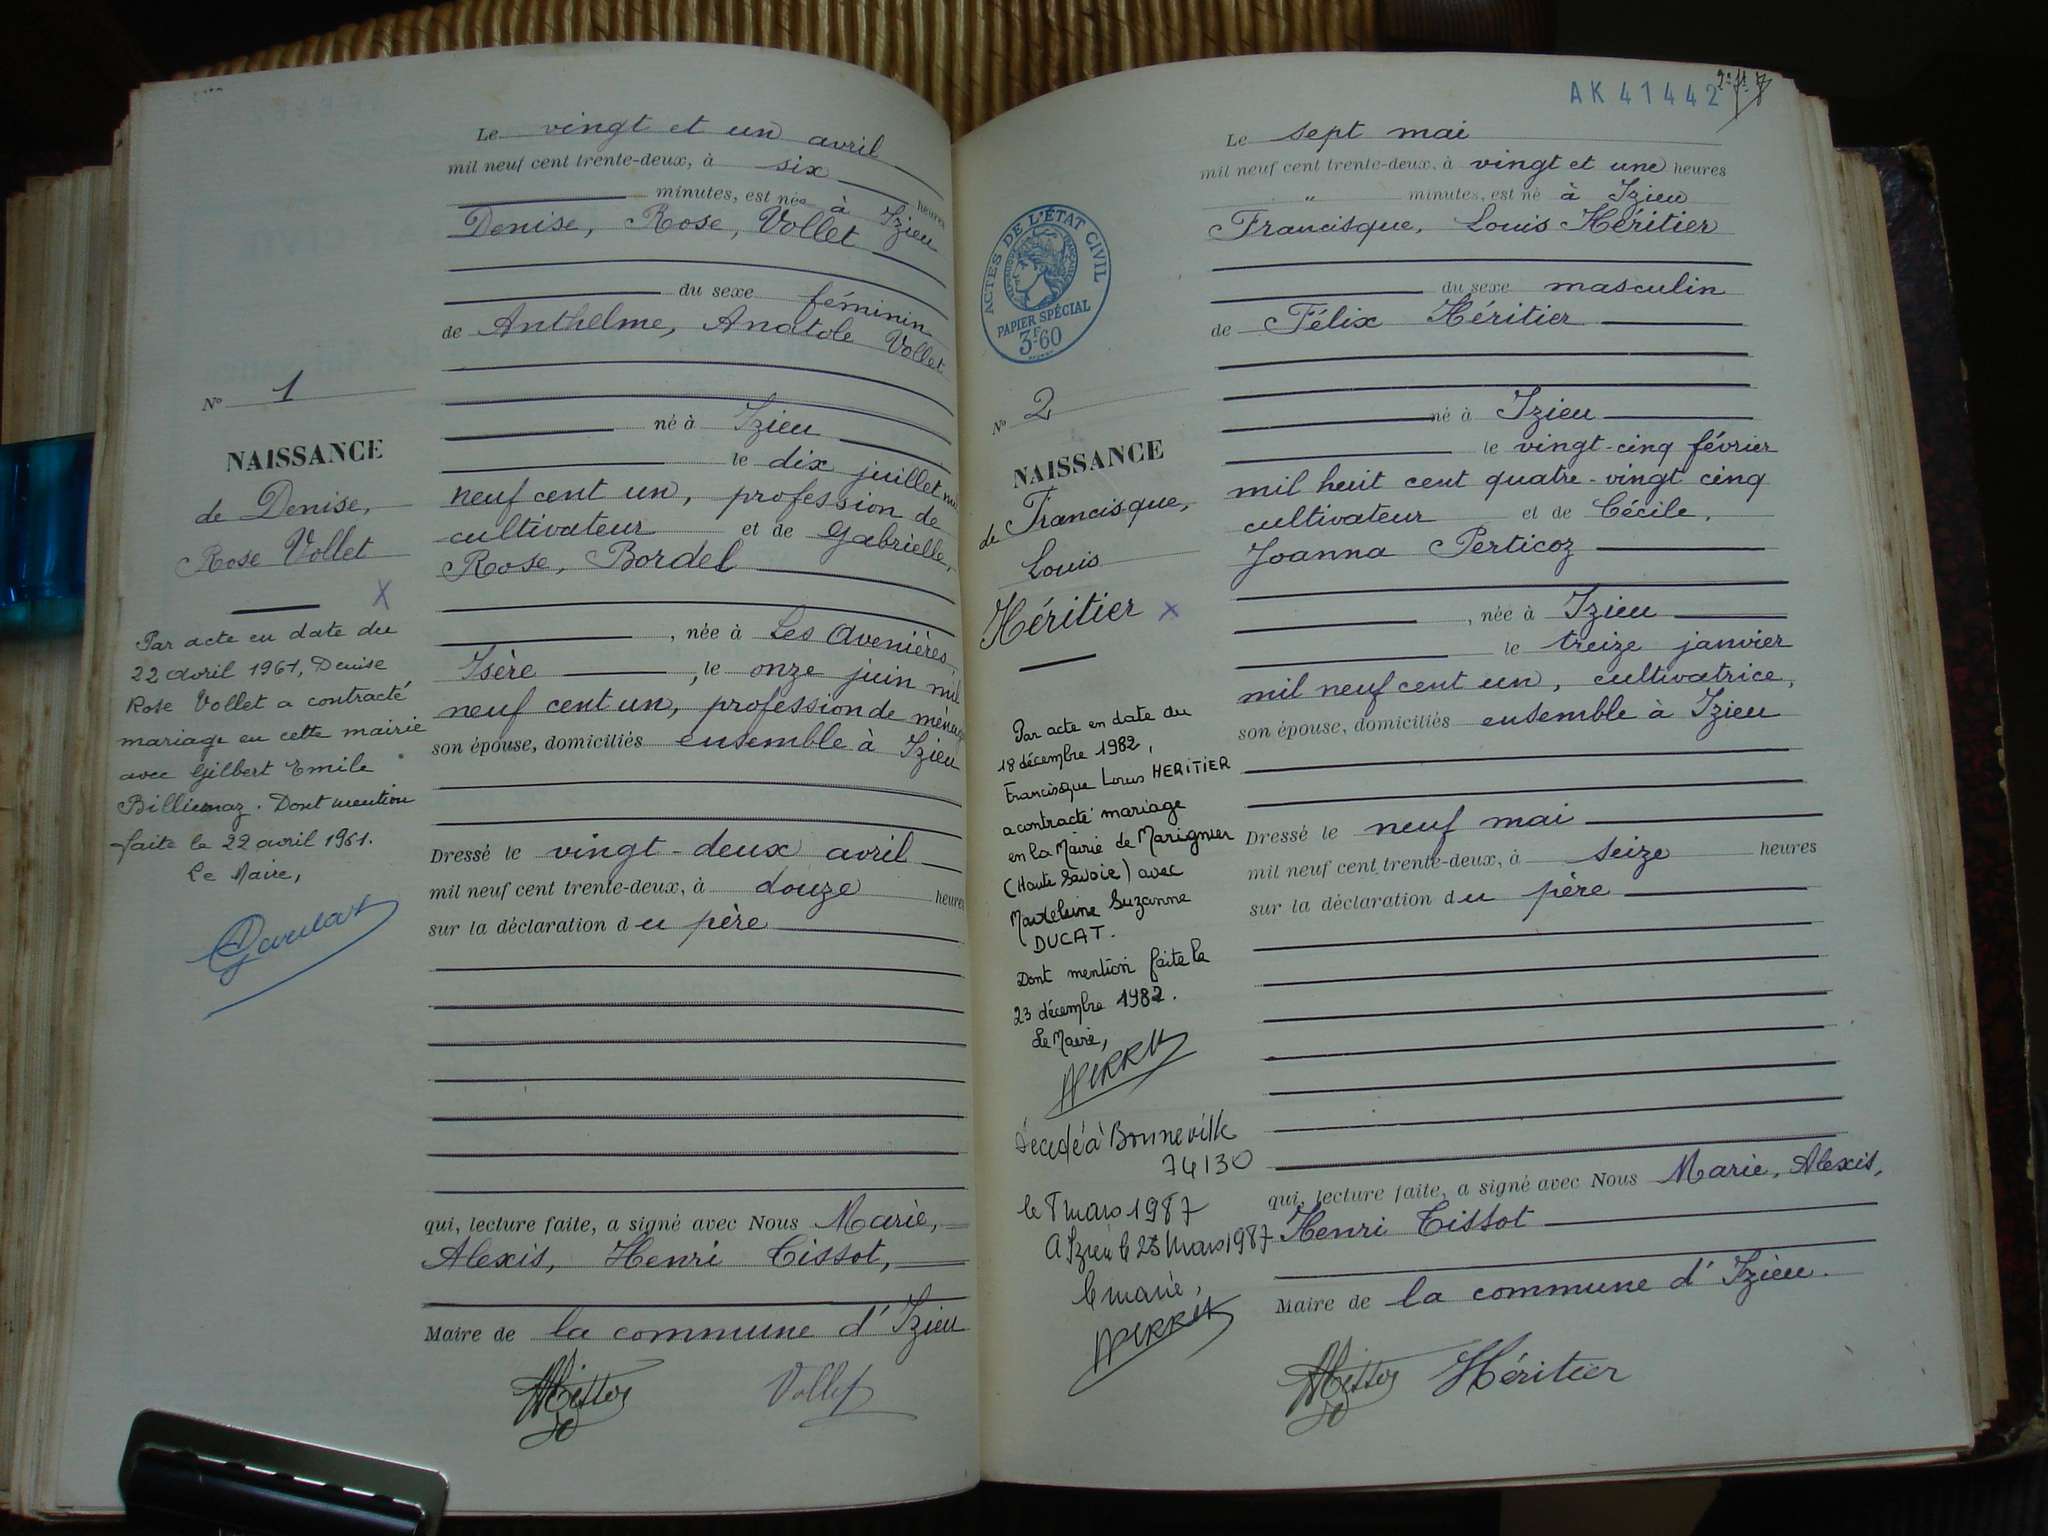 Le vingt et un avril
mil neuf cent trente-deux, à six heures
minutes, est née à Izieu
Denise, Rose, Vollet
du sexe féminin
de Anthelme, Anatole Vollet
né à Izieu
le dix juillet mil
neuf cent un, profession de
cultivateur et de Gabrielle,
Rose, Bordel
, née à Les Avenières,
Isère , le onze juin mil
neuf cent un, profession de ménagère
son épouse, domiciliés ensemble à Izieu
Dressé le vingt-deux avril
mil neuf cent trente-deux, à douze heures
sur la déclaration du père
qui, lecture faite, a signé avec Nous Marie,
Alexis, Henri Tissot,
Maire de la commune d'Izieu
Vollet
No 1
NAISSANCE
de Denise,
Rose Vollet
X
Par acte en date du
22 avril 1961, Denise
Rose Vollet a contracté
mariage en cette mairie
avec Gilbert Emile
Billiemaz. Dont mention
faite le 22 avril 1961.
Le Maire,
AK 41442
Le sept mai
mil neuf cent trente-deux, à vingt et une heures
" minutes, est né à Izieu
Francisque, Louis Héritier
du sexe masculin
de Félix Héritier
né à Izieu
le vingt-cinq février
mil huit cent quatre-vingt cinq
cultivateur et de Cécile,
Joanna Perticoz
, née à Izieu
le treize janvier
mil neuf cent un, cultivatrice,
son épouse, domiciliés ensemble à Izieu
Dressé le neuf mai
mil neuf cent trente-deux, à seize heures
sur la déclaration du père
qui, lecture faite, a signé avec Nous Marie, Alexis,
Henri Tissot
Maire de la commune d'Izieu.
Héritier
ACTES DE L'ÉTAT CIVIL
PAPIER SPÉCIAL
3F60
No 2
NAISSANCE
de Francisque,
Louis
Héritier X
Par acte en date du
18 décembre 1982,
Francisque Louis HERITIER
a contracté mariage
en la Mairie de Marignier
(Haute Savoie) avec
Madeleine Suzanne
DUCAT.
Dont mention faite le
23 décembre 1982.
Le Maire,
décédé à Bonneville
74130
le 8 mars 1987
A Izieu le 23 Mars 1987
le maire,